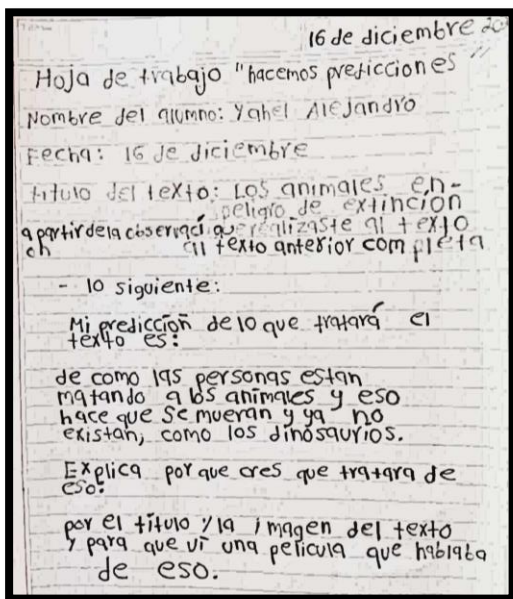 16 de diciembre 20
Hoja de trabajo "hacemos predicciones"
Nombre del alumno: Yahel Alejandro
Fecha: 16 de diciembre
titulo del texto: Los animales en-
peligro de extincion
a partir de la observaci que realizaste al texto
on al texto anterior completa
- lo siguiente:
Mi predicción de lo que tratará el
texto es:
de como las personas estan
matando a los animales y eso
hace que se mueran y ya no
existan, como los dinosaurios.
Explica por que cres que tratara de
eso:
por el título y la imagen del texto
y para que vi una pelicula que hablaba
de eso.